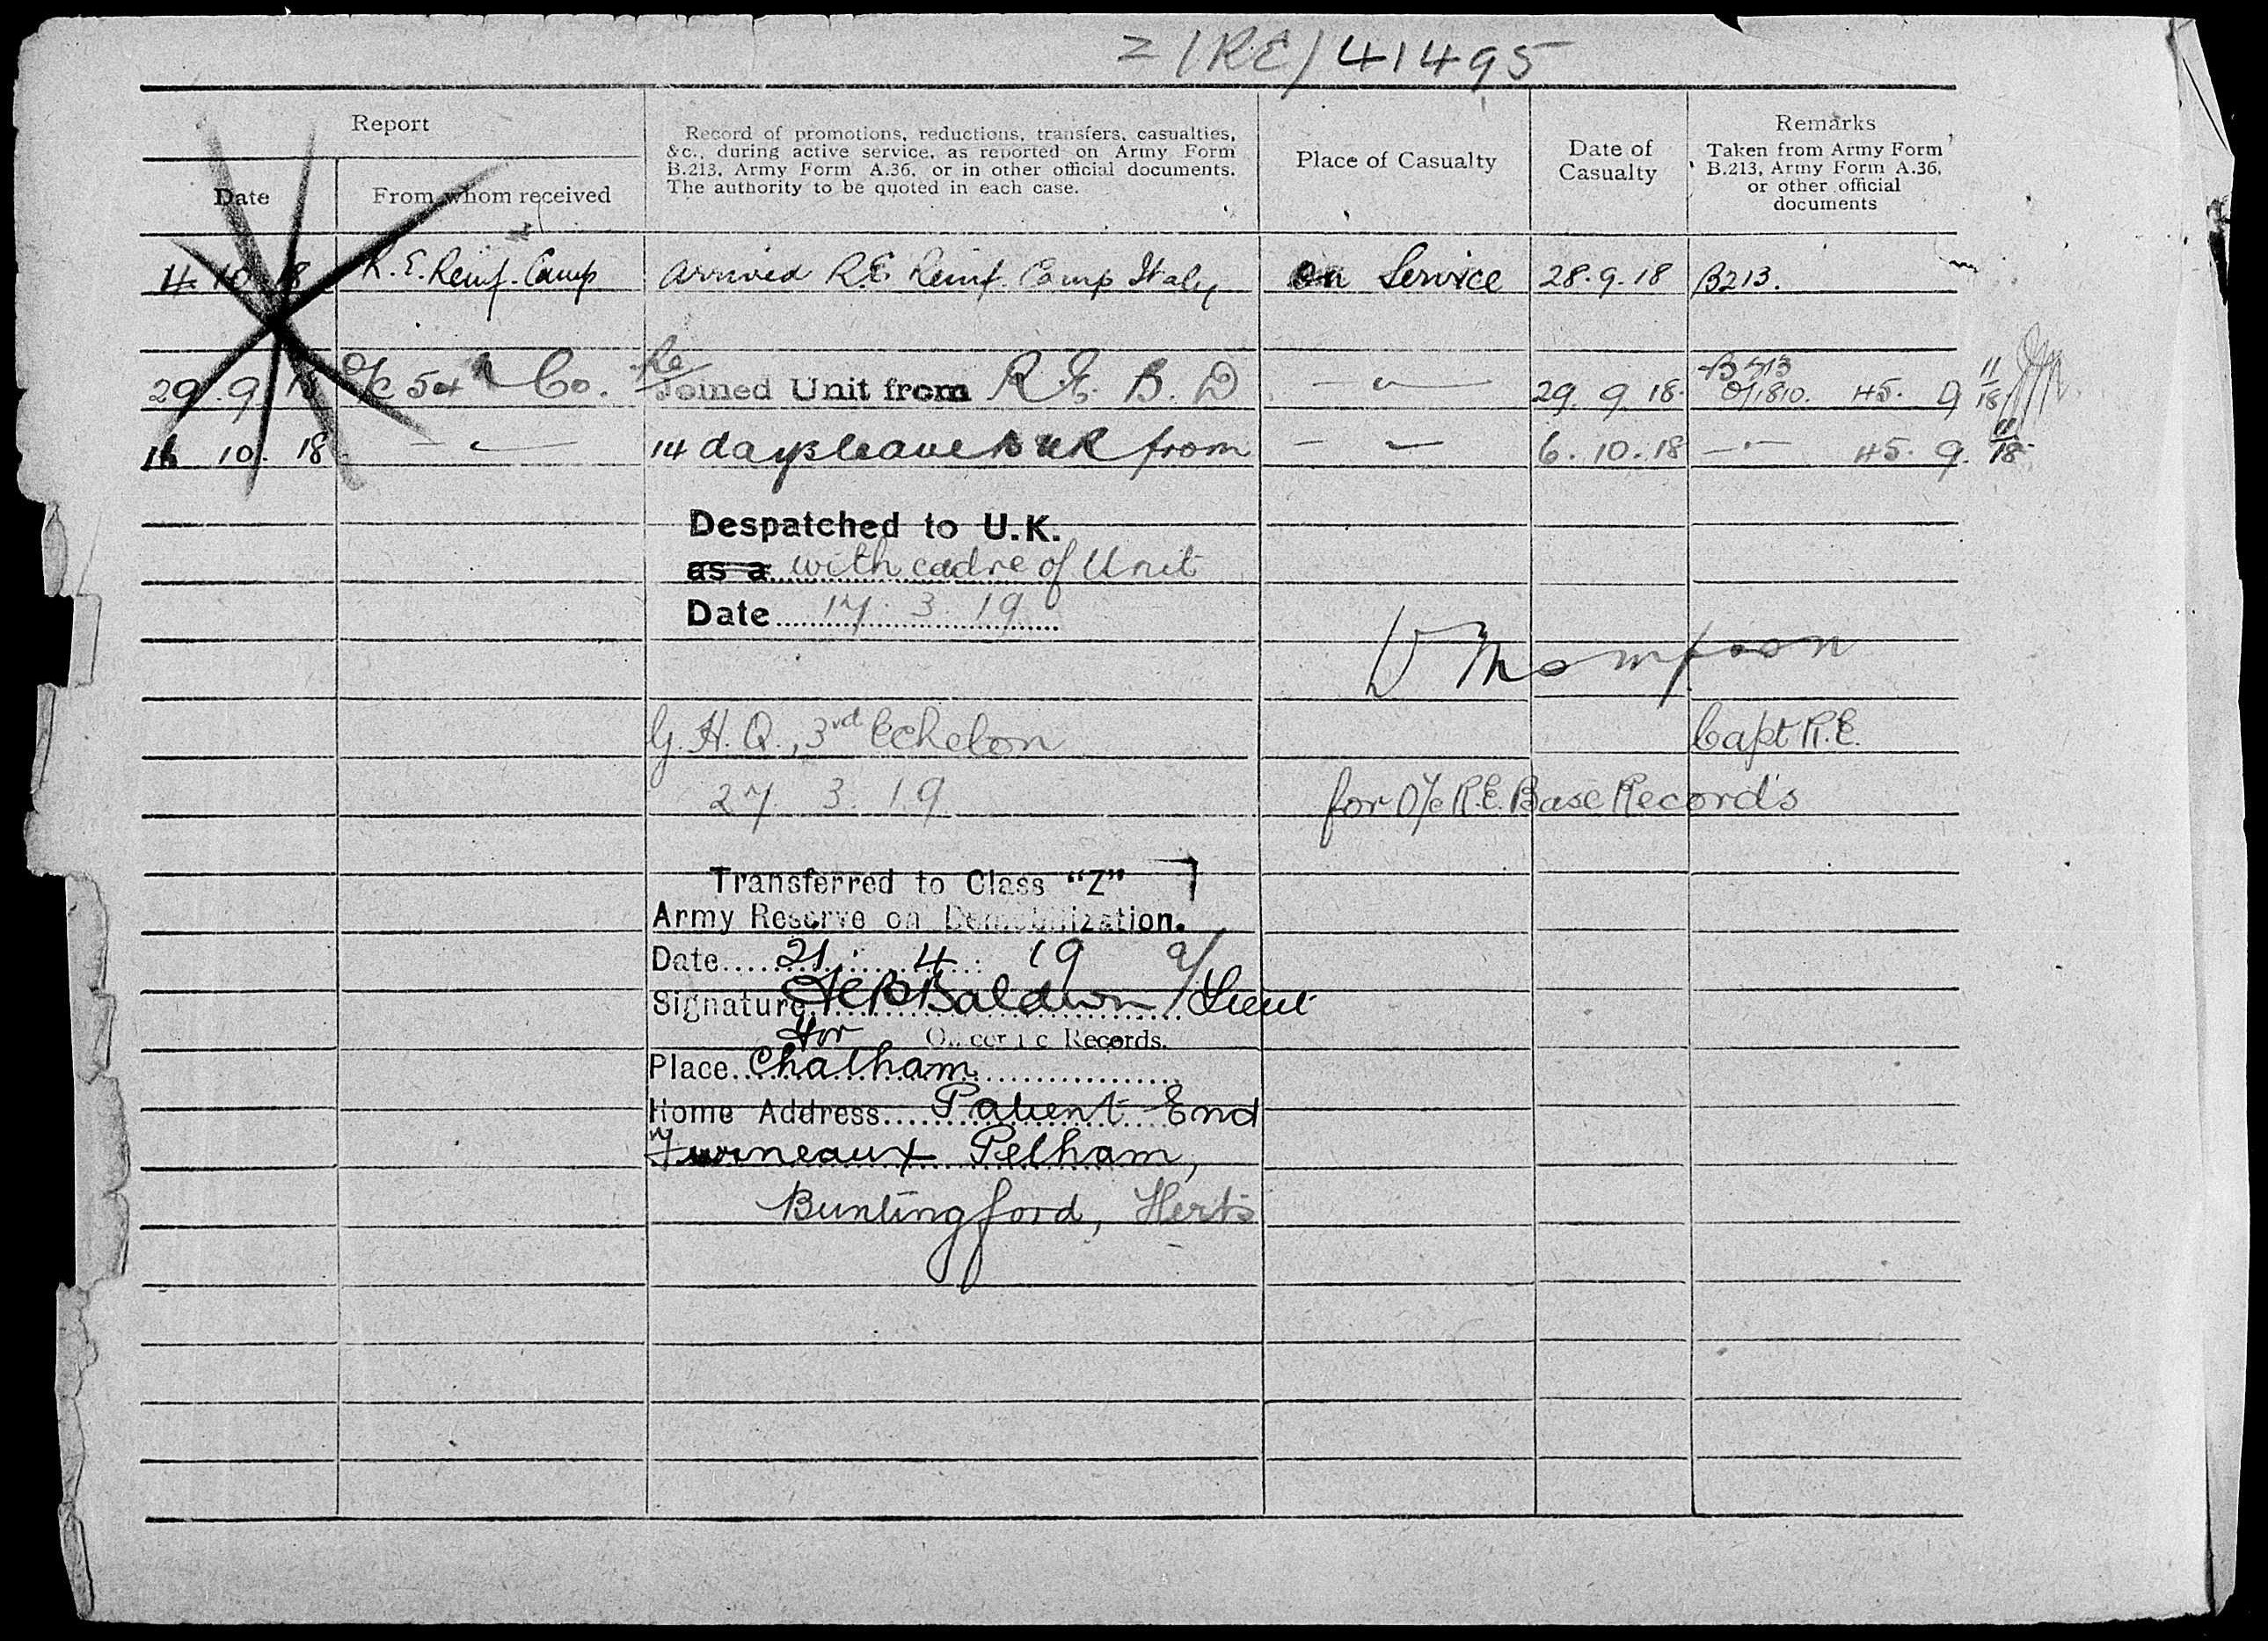 Z/RE/41495
Report
Date
From whom received
Record of promotions, reductions, transfers, casualties,
&c., during active service, as reported on Army Form
B.213, Army Form A.36, or in other official documents.
The authority to be quoted in each case.
Place of Casualty
Date of
Casualty
Remarks
Taken from Army Form
B.213, Army Form A.36,
or other official
documents
4. 10. 18 R.E. Reinf. Camp Arrived R.E Reinf. Camp Italy On Service 28.9.18 B213.
29. 9. 18 O/c 54th Co. Re Joined Unit from R.E. B. D — " — 29. 9. 18. B213
O/1810. H5. 9 11/18
16 10. 18 — " — 14 days leave to UK from — " — 6. 10. 18 — " — H5. 9. 11/18
Despatched to U.K.
as a with cadre of Unit
Date 17. 3. 19
D Thompson
G.H.Q., 3rd Echelon Capt R.E.
27. 3. 19 for O/c R.E. Base Records
Transferred to Class "Z"
Army Reserve on Demobilization.
Date 21. 4. 19
Signature Baldwin a/Lieut
for Officer i c Records.
Place Chatham
Home Address Patient End
Furneaux Pelham,
Buntingford, Herts